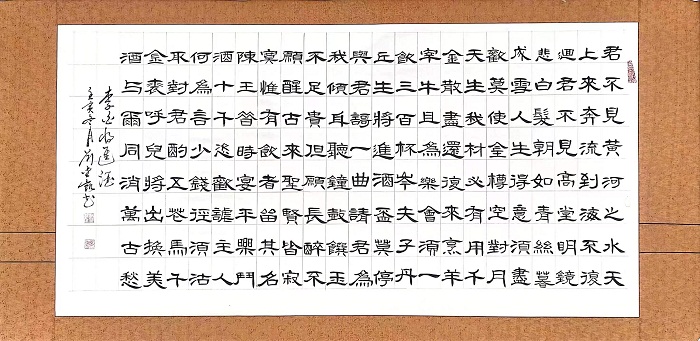 君不見黃河之水天
上來奔流到海不復
迴君不見高堂明鏡
悲白髮朝如青絲暮
成雪人生得意須盡
歡莫使金樽空對月
天生我材必有用千
金散盡還復來烹羊
宰牛且為樂會須一
飲三百杯岑夫子丹
丘生將進酒盃莫停
與君謌一曲請君為
我傾耳聽鐘鼓饌玉
不足貴但願長醉不
願醒古來聖賢皆寂
寞惟有飲者留其名
陳王昔時宴平樂鬥
酒十千恣歡謔主人
何為言少錢徑須沽
取對君酌五花馬千
金裘呼兒將出換美
酒与爾同消萬古愁
李白將進酒
冬月